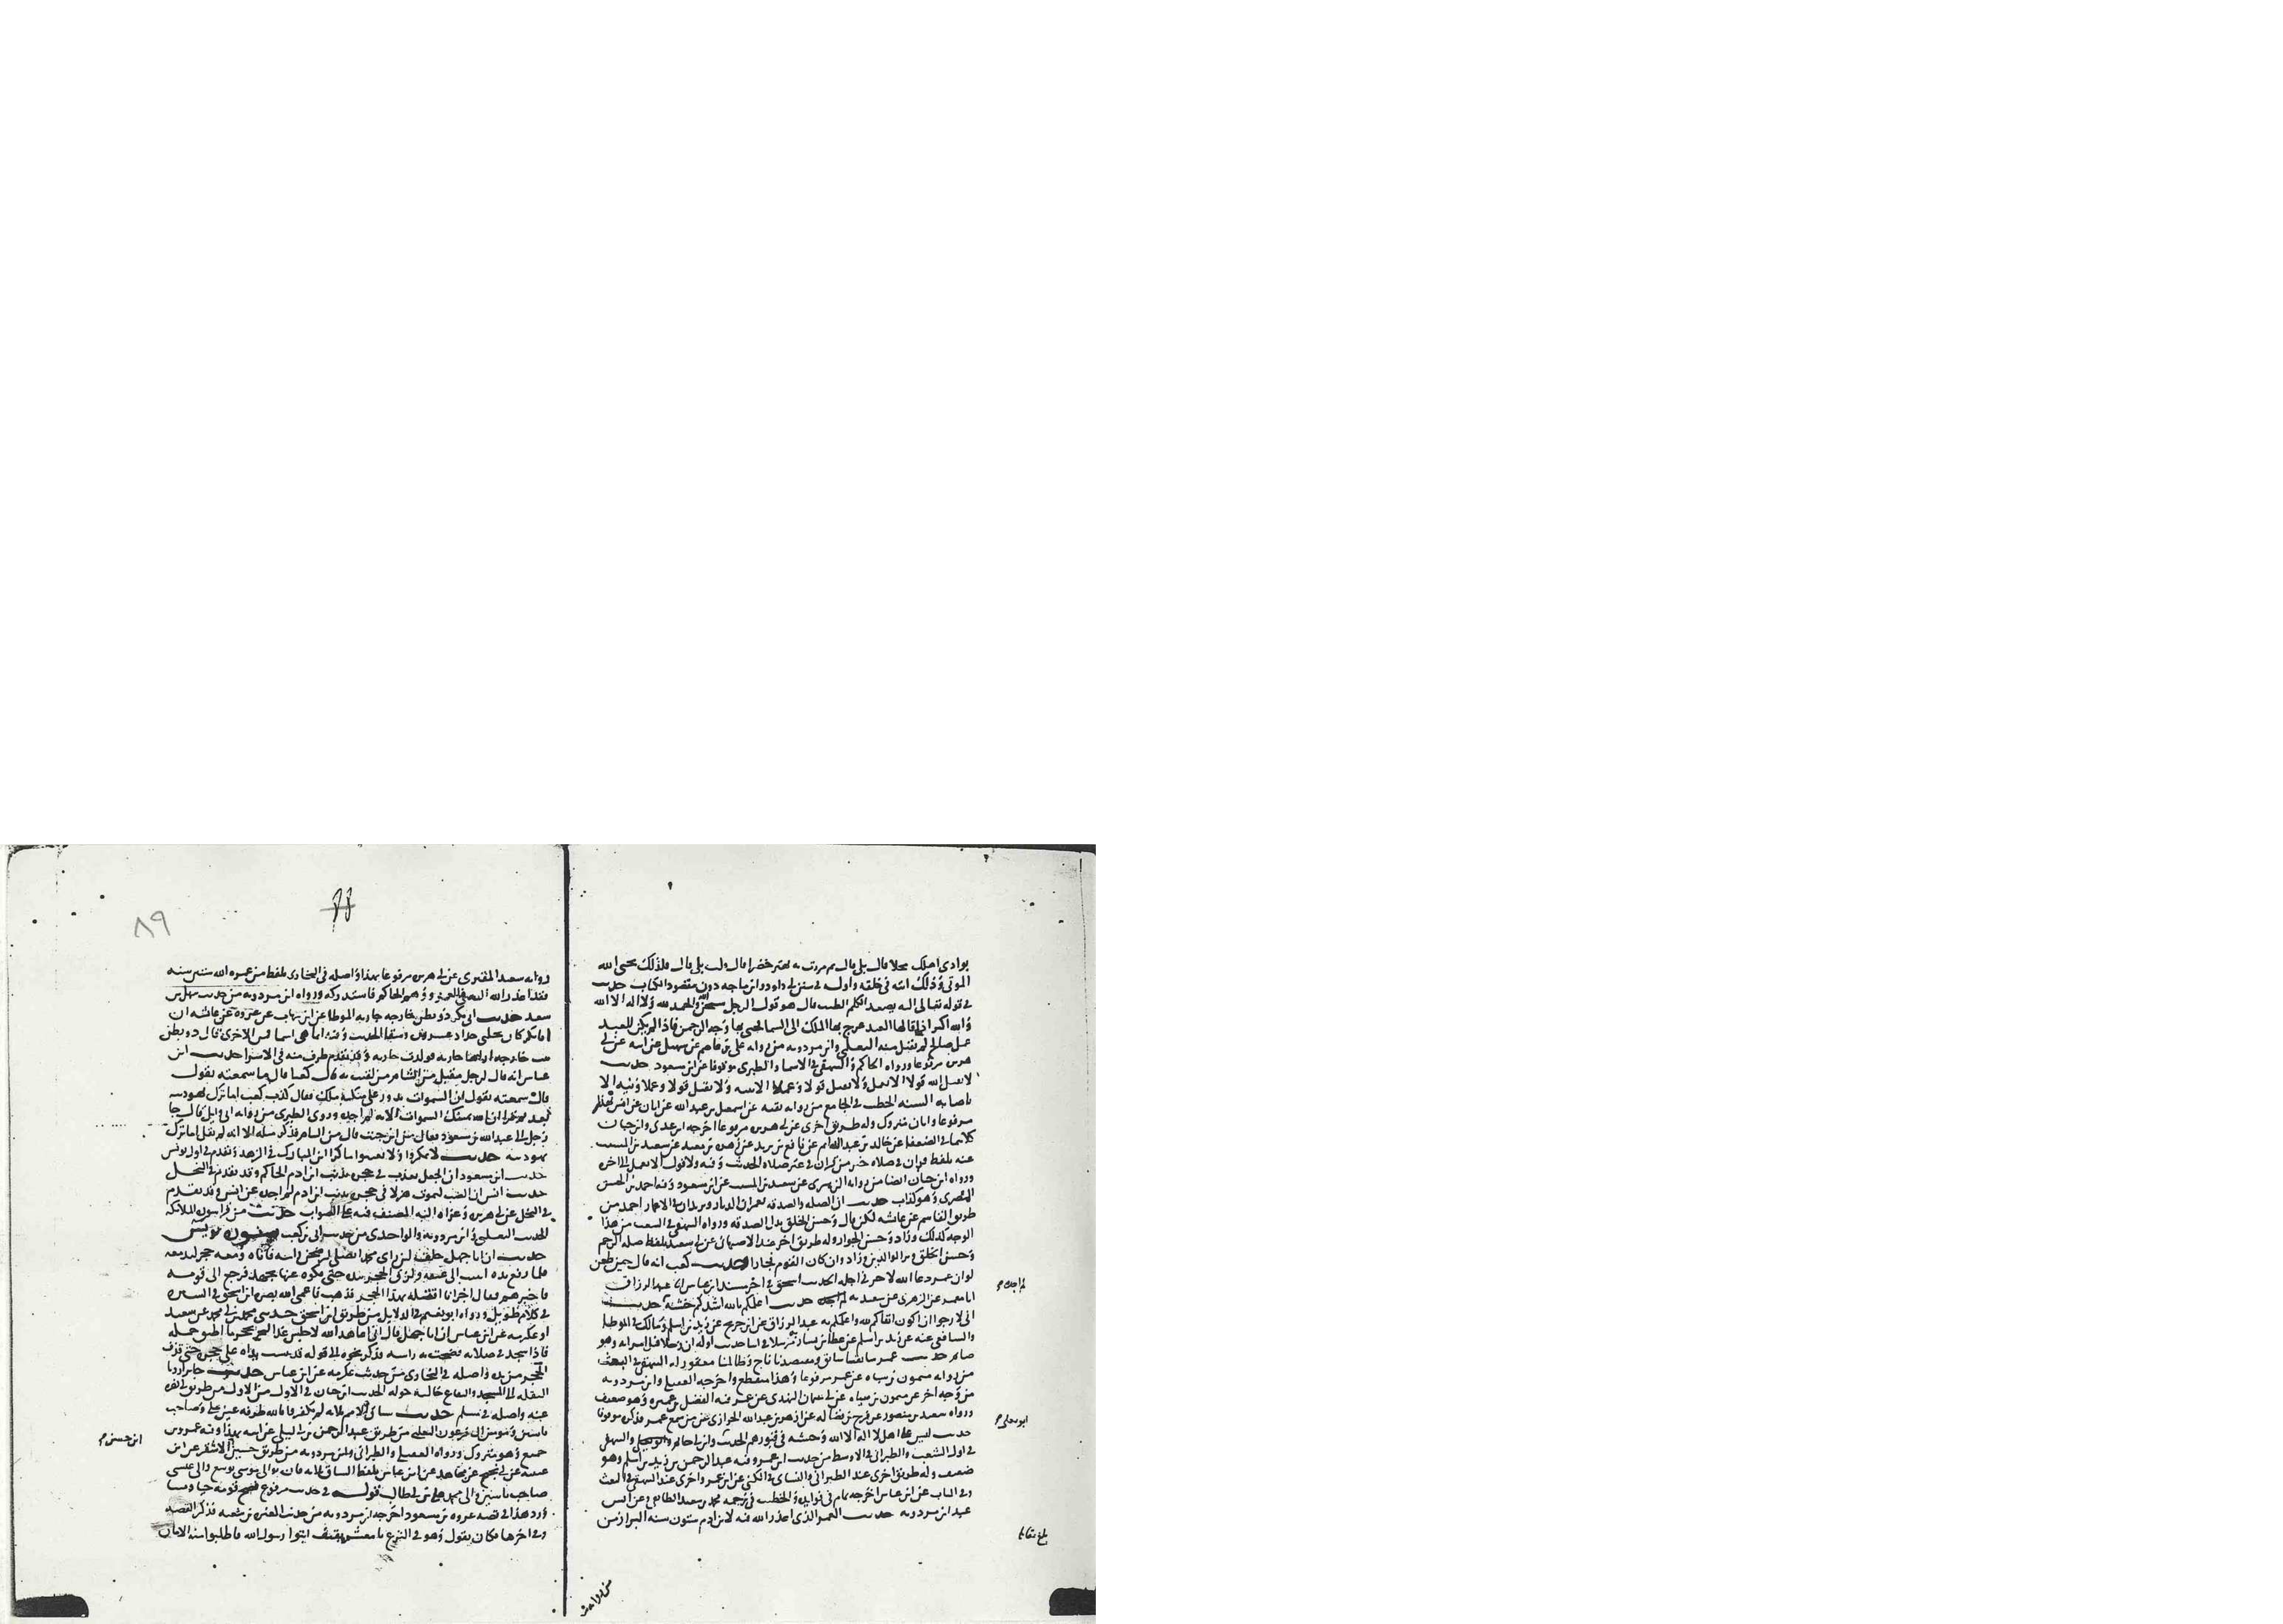 بوادي اهلك محلا قال بلى قال ثم مررت به يهتز خضرا قال قلت بلى قال فكذلك يحيى الله
الموتى وذلك آيته في خلقه واوله في سنن ابي داود وابن ماجه دون مقصود الكتاب حديث
في قوله تعالى اليه يصعد الكلم الطيب قال هو قول الرجل سبحان الله والحمد لله ولا اله الا الله
والله اكبر اذا قالها العبد عرج بها الملك الى السما فحيى بها وجه الرحمن فاذا لم يكن للعبد
عمل صالح لم يقبل منه الثعلبي وابن مردويه من رواية علي بن عاصم عن سهيل عن ابيه عن ابي
هريرة مرفوعا ورواه الحاكم والبيهقي في الاسما والطبري موقوفا عن ابن مسعود حديث
لا يقبل الله قولا الا بعمل ولا يقبل قولا وعملا الا بنية ولا يقبل قولا وعملا ونية الا
باصابة السنة الخطيب في الجامع من رواية بقية عن اسمعيل بن عبد الله عن ابان عن انس
مرفوعا وابان متروك وله طريق اخرى عن ابي هريرة مرفوعا اخرجه ابن عدي وابن حبان
كلاهما في الضعفا عن خالد بن عبد الدايم عن نافع بن يزيد عن زهرة بن معبد عن سعيد بن المسيب
عنه بلفظ قران في صلاة خير من قران في غير صلاة الحديث وفيه ولا قول الا بعمل الى اخره
ورواه ابن حبان ايضا من رواية الزهري عن سعيد بن المسيب عن ابن مسعود وفيه احمد بن الحسن
المصري وهو كذاب حديث ان الصلة والصدقة يعمران الديار ويزيدان في الاعمار احمد من
طريق القاسم عن عائشة لكن قال وحسن الخلق بدل الصدقة ورواه البيهقي في الشعب من هذا
الوجه كذلك وزاد وحسن الجوار وله طريق اخر عند الاصبهاني عن ابي سعيد بلفظ صلة الرحم
وحسن الخلق وبر الوالدين وزاد وان كان القوم فجارا حديث كعب انه قال حين طعن
لو ان عمر دعا الله لاخر في اجله الحديث اسحق في اخر مسند ابن عباس انا عبد الرزاق
انا معمر عن الزهري عن سعيد به حديث اعلمكم بالله اشدكم خشية حديث
اني لارجوا ان اكون اتقاكم لله واعلمكم به عبد الرزاق عن ابن جريج عن زيد بن اسلم ومالك في الموطا
والشافعي عنه عن زيد بن اسلم عن عطا بن يسار مرسلا في اثنا حديث اوله ان رجلا قبل امراته وهو
صائم حديث عمر سابقنا سابق ومقتصدنا ناج وظالمنا مغفور له البيهقي في البعث
من رواية ميمون بن سياه عن عمر مرفوعا وهذا منقطع واخرجه العقيلي وابن مردويه
من وجه اخر عن ميمون بن سياه عن ابي عثمان النهدي عن عمر فيه الفضل بن عميرة وهو ضعيف
ورواه سعيد بن منصور عن فرج بن فضالة عن ازهر بن عبد الله الحرازي عن من سمع عمر فذكره موقوفا
حديث ليس على اهل لا اله الا الله وحشة في قبورهم الحديث وابن ابي حاتم والبيهقي
في اول الشعب والطبراني في الاوسط من حديث ابن عمر وفيه عبد الرحمن بن زيد بن اسلم وهو
ضعيف وله طريق اخرى عند الطبراني والنسائي في الكنى عن ابن عمر واخرى عند البيهقي في البعث
وفي الباب عن ابن عباس اخرجه تمام في فوايده والخطيب في ترجمة محمد بن سعيد الطائفي وعن انس
عند ابن مردويه حديث العمر الذي اعذر الله فيه لابن ادم ستون سنة البزار من
لم اجده
ابو يعلى
بلغ مقابلة
٨٩
رواية سعيد المقبري عن ابي هريرة مرفوعا بهذا واصله في البخاري بلفظ من عمره الله ستين سنة
فقد اعذر الله اليه في العمر ووهم الحاكم فاستدركه ورواه ابن مردويه من حديث سهل بن
سعد حديث ابي بكر ذو بطن خارجة جارية الموطا عن ابن شهاب عن عروة عن عائشة ان
ابا بكر كان نحلها جداد عشرين وسقا الحديث وفيه انما هي اسما فمن الاخرى قال ذو بطن
بنت خارجة اراها جارية فولدت جارية وقد تقدم طرف منه في الاسرا حديث ابن
عباس انه قال لرجل مقبل من الشام من لقيت به قال كعبا قال ما سمعته يقول
قال سمعته يقول ان السموات تدور على منكب ملك فقال كذب كعب اما ترك يهوديته
بعد ثم قرا ان الله يمسك السموات الاية لم اجده وروى الطبري من رواية ابي وايل قال جا
رجل الى عبد الله بن مسعود فقال من اين جئت قال من الشام فذكر مثله الا انه لم يقل اما ترك
يهوديته حديث لا تمكروا ولا تعينوا ماكرا ابن المبارك في الزهد وتقدم في اول يونس
حديث ابن مسعود ان الجعل يعذب في جحره بذنب ابن ادم الحاكم وقد تقدم في النحل
حديث انس ان الضب ليموت هزلا في جحره بذنب ابن ادم لم اجده عن انس وقد تقدم
في النحل عن ابي هريرة وعزاه اليه المصنف فيه على الصواب حديث من قرا سورة الملائكة
الحديث الثعلبي وابن مردويه والواحدي من حديث ابي بن كعب سورة يس
حديث ان ابا جهل حلف لئن راى محمدا يصلي ليرضخن راسه فاتاه ومعه حجر ليدمغه
فلما رفع يده اثبتت الى عنقه ولزق الحجر بيده حتى فكوه عنها بجهد فرجع الى قومه
فاخبرهم فقال اخر انا اقتله بهذا الحجر فذهب فاعمى الله بصره ابن اسحق في السيرة
في كلام طويل ورواه ابو نعيم في الدلايل من طريق ابن اسحق حدثني محمد بن ابي محمد عن سعيد
او عكرمة عن ابن عباس ان ابا جهل قال اني اعاهد الله لاجلسن غدا بحجر ما اطيق حمله
فاذا سجد في صلاته فضخت به راسه فذكر نحوه الى قوله قد يبست يداه على حجره حتى قذف
الحجر من يده واصله في البخاري من حديث عكرمة عن ابن عباس حديث جابر اردنا
النقلة الى المسجد والبقاع خالية حوله الحديث ابن حبان في الاول من الاول من طريق ابي نضرة
عنه واصله في مسلم حديث سباق الامم ثلاثة لم يكفروا بالله طرفة عين علي وصاحب
ياسين ومومن ال فرعون الثعلبي من طريق عبد الرحمن بن ابي ليلى عن ابيه بهذا وفيه عمرو بن
جميع وهو متروك ورواه العقيلي والطبراني وابن مردويه من طريق حسين الاشقر عن ابن
عيينة عن ابن ابي نجيح عن مجاهد عن ابن عباس بلفظ السباق ثلاثة فالى موسى يوشع والى عيسى
صاحب ياسين والى محمد علي بن ابي طالب قوله في حديث مرفوع نصح قومه حيا وميتا
ورد هذا في قصة عروة بن مسعود اخرجه ابن مردويه من حديث المغيرة بن شعبة فذكر القصة
وفي اخرها فكان يقول وهو في النزع يا معشر ثقيف ايتوا رسول الله فاطلبوا منه الامان
ابن حسن